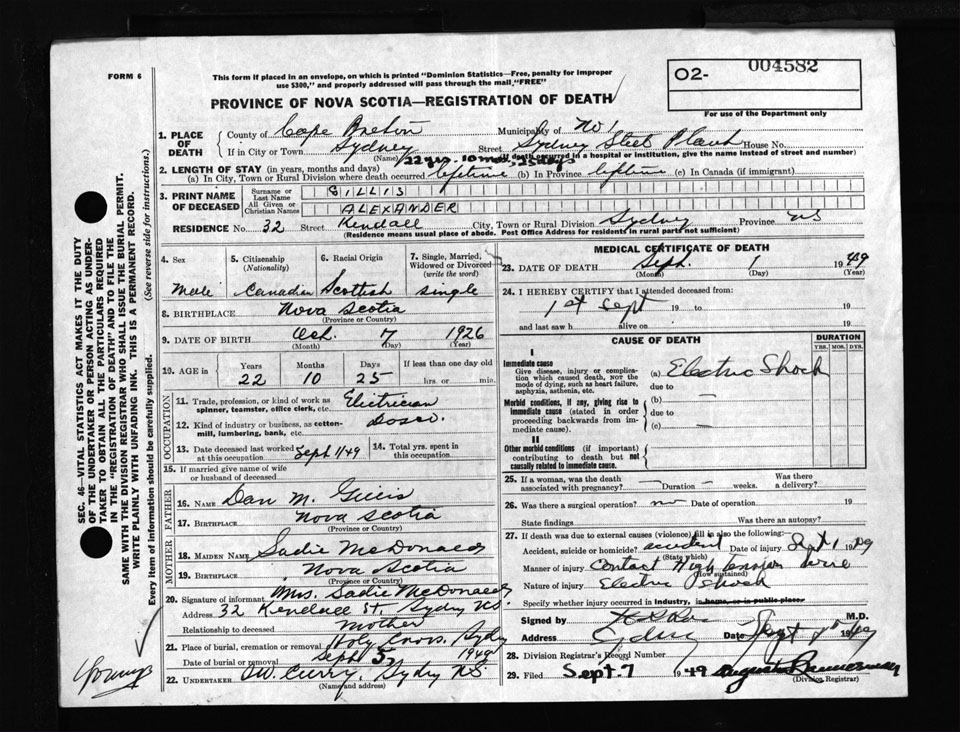 FORM 6
This form if placed in an envelope, on which is printed "Dominion Statistics—Free, penalty for improper
use $300," and properly addressed will pass through the mail, "FREE"
PROVINCE OF NOVA SCOTIA—REGISTRATION OF DEATH
O2- 004582
For use of the Department only
1. PLACE OF DEATH
County of Cape Breton Municipality of No 1
If in City or Town Sydney Street Sydney Steel Plant House No.
(Name) (If death occurred in a hospital or institution, give the name instead of street and number)
22 yrs. 10 mos. 25 days
2. LENGTH OF STAY (in years, months and days)
(a) In City, Town or Rural Division where death occurred lifetime (b) In Province lifetime (c) In Canada (if immigrant)
3. PRINT NAME OF DECEASED
Surname or Last Name GILLIS
All Given or Christian Names ALEXANDER
RESIDENCE No. 32 Street Kendall City, Town or Rural Division Sydney Province NS
(Residence means usual place of abode. Post Office Address for residents in rural parts not sufficient)
4. Sex Male
5. Citizenship (Nationality) Canadian
6. Racial Origin Scottish
7. Single, Married, Widowed or Divorced (write the word) single
8. BIRTHPLACE Nova Scotia
(Province or Country)
9. DATE OF BIRTH Oct. 7 1926
(Month) (Day) (Year)
10. AGE in Years Months Days If less than one day old
22 10 25 hrs. or min.
OCCUPATION
11. Trade, profession, or kind of work as spinner, teamster, office clerk, etc. Electrician
12. Kind of industry or business, as cotton-mill, lumbering, bank, etc. Dosco.
13. Date deceased last worked at this occupation Sept 1/49
14. Total yrs. spent in this occupation.
15. If married give name of wife or husband of deceased
FATHER
16. NAME Dan M. Gillis
17. BIRTHPLACE Nova Scotia
(Province or Country)
MOTHER
18. MAIDEN NAME Sadie McDonald
19. BIRTHPLACE Nova Scotia
(Province or Country)
20. Signature of informant Mrs. Sadie McDonald
Address 32 Kendall St. Sydney NS.
Relationship to deceased Mother
21. Place of burial, cremation or removal Holy Cross, Sydney
Date of burial or removal Sept 5 1949
22. UNDERTAKER W. Curry, Sydney NS.
(Name and address)
MEDICAL CERTIFICATE OF DEATH
23. DATE OF DEATH Sept. 1 1949
(Month) (Day) (Year)
24. I HEREBY CERTIFY that I attended deceased from:
1st Sept 19 to 19
and last saw h alive on 19
CAUSE OF DEATH
DURATION
YRS. MOS. DYS.
I
Immediate cause
Give disease, injury or complication which caused death, NOT the mode of dying, such as heart failure, asphyxia, asthenia, etc.
(a) Electric Shock
due to
(b) —
Morbid conditions, if any, giving rise to immediate cause (stated in order proceeding backwards from immediate cause).
due to
(c) —
II
Other morbid conditions (if important) contributing to death but not causally related to immediate cause.
25. If a woman, was the death associated with pregnancy? — Duration — weeks. Was there a delivery?
26. Was there a surgical operation? no Date of operation 19
State findings Was there an autopsy?
27. If death was due to external causes (violence) fill in also the following:
Accident, suicide or homicide? accident Date of injury Sept 1 1949
(State which)
Manner of injury Contact High tension wire
(How sustained)
Nature of injury Electric shock
Specify whether injury occurred in Industry, in home, or in public place
Signed by M.D.
Address Sydney Date Sept 1949
28. Division Registrar's Record Number
29. Filed Sept. 7 1949
(Division Registrar)
SEC. 46—VITAL STATISTICS ACT MAKES IT THE DUTY
OF THE UNDERTAKER OR PERSON ACTING AS UNDERTAKER TO OBTAIN ALL THE PARTICULARS REQUIRED
IN THE "REGISTRATION OF DEATH" AND TO FILE THE
SAME WITH THE DIVISION REGISTRAR WHO SHALL ISSUE THE BURIAL PERMIT.
WRITE PLAINLY WITH UNFADING INK. THIS IS A PERMANENT RECORD.
Every item of information should be carefully supplied. (See reverse side for instructions.)